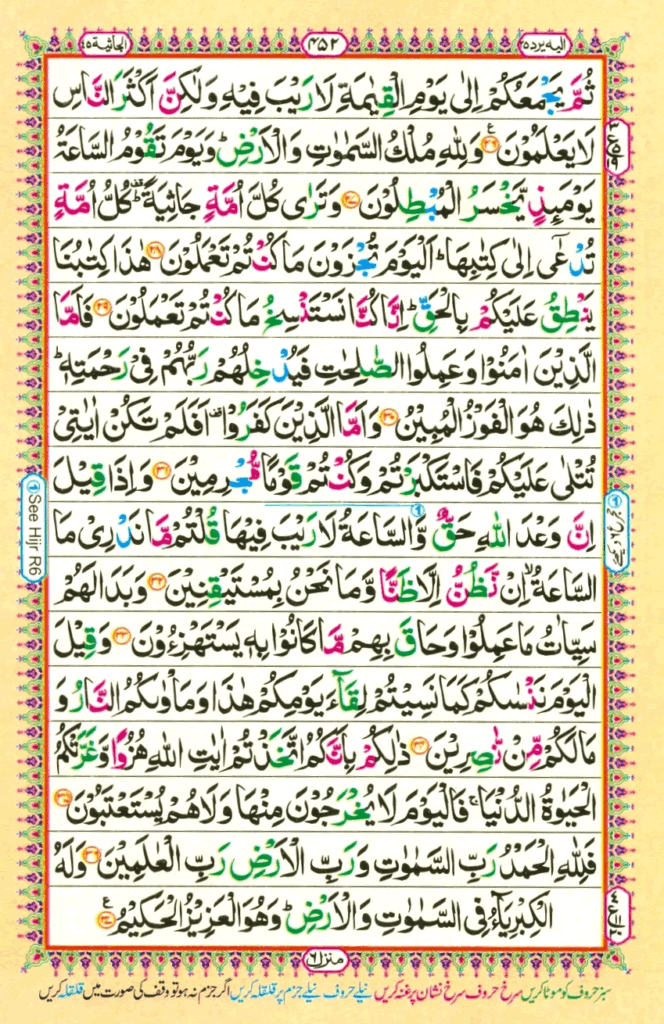 الیه یرد ۲۵
۴۵۲
الجاثیة ۴۵
ثُمَّ یَجْمَعُكُمْ اِلٰی یَوْمِ الْقِیٰمَةِ لَا رَیْبَ فِیْهِ وَلٰكِنَّ اَكْثَرَ النَّاسِ
لَا یَعْلَمُوْنَ ﴿۲۶﴾ وَلِلّٰهِ مُلْكُ السَّمٰوٰتِ وَالْاَرْضِ ؕ وَیَوْمَ تَقُوْمُ السَّاعَةُ
یَوْمَئِذٍ یَّخْسَرُ الْمُبْطِلُوْنَ ﴿۲۷﴾ وَتَرٰی كُلَّ اُمَّةٍ جَاثِیَةً ؕ كُلُّ اُمَّةٍ
تُدْعٰۤی اِلٰی كِتٰبِهَا ؕ اَلْیَوْمَ تُجْزَوْنَ مَا كُنْتُمْ تَعْمَلُوْنَ ﴿۲۸﴾ هٰذَا كِتٰبُنَا
یَنْطِقُ عَلَیْكُمْ بِالْحَقِّ ؕ اِنَّا كُنَّا نَسْتَنْسِخُ مَا كُنْتُمْ تَعْمَلُوْنَ ﴿۲۹﴾ فَاَمَّا
الَّذِیْنَ اٰمَنُوْا وَعَمِلُوا الصّٰلِحٰتِ فَیُدْخِلُهُمْ رَبُّهُمْ فِیْ رَحْمَتِهٖ ؕ
ذٰلِكَ هُوَ الْفَوْزُ الْمُبِیْنُ ﴿۳۰﴾ وَاَمَّا الَّذِیْنَ كَفَرُوْا ۫ اَفَلَمْ تَكُنْ اٰیٰتِیْ
تُتْلٰی عَلَیْكُمْ فَاسْتَكْبَرْتُمْ وَكُنْتُمْ قَوْمًا مُّجْرِمِیْنَ ﴿۳۱﴾ وَاِذَا قِیْلَ
اِنَّ وَعْدَ اللّٰهِ حَقٌّ وَّالسَّاعَةُ لَا رَیْبَ فِیْهَا قُلْتُمْ مَّا نَدْرِیْ مَا
السَّاعَةُ ۙ اِنْ نَّظُنُّ اِلَّا ظَنًّا وَّمَا نَحْنُ بِمُسْتَیْقِنِیْنَ ﴿۳۲﴾ وَبَدَا لَهُمْ
سَیِّاٰتُ مَا عَمِلُوْا وَحَاقَ بِهِمْ مَّا كَانُوْا بِهٖ یَسْتَهْزِءُوْنَ ﴿۳۳﴾ وَقِیْلَ
الْیَوْمَ نَنْسٰىكُمْ كَمَا نَسِیْتُمْ لِقَآءَ یَوْمِكُمْ هٰذَا وَمَاْوٰىكُمُ النَّارُ وَ
مَا لَكُمْ مِّنْ نّٰصِرِیْنَ ﴿۳۴﴾ ذٰلِكُمْ بِاَنَّكُمُ اتَّخَذْتُمْ اٰیٰتِ اللّٰهِ هُزُوًا وَّغَرَّتْكُمُ
الْحَیٰوةُ الدُّنْیَا ۚ فَالْیَوْمَ لَا یُخْرَجُوْنَ مِنْهَا وَلَا هُمْ یُسْتَعْتَبُوْنَ ﴿۳۵﴾
فَلِلّٰهِ الْحَمْدُ رَبِّ السَّمٰوٰتِ وَرَبِّ الْاَرْضِ رَبِّ الْعٰلَمِیْنَ ﴿۳۶﴾ وَلَهُ
الْكِبْرِیَآءُ فِی السَّمٰوٰتِ وَالْاَرْضِ ؕ وَهُوَ الْعَزِیْزُ الْحَكِیْمُ ﴿۳۷﴾
① See Hijr R6
منزل ۶
سبز حروف کو موٹا کریں سرخ حروف سرخ نشان پر غنہ کریں نیلے حروف نیلے جزم پر قلقلہ کریں اگر جزم نہ ہو تو وقف کی صورت میں قلقلہ کریں